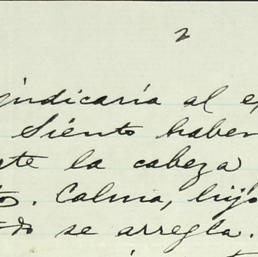 2
judicaría al e
Siento haber
te la cabeza
. Calma, hijo
do se arregla.